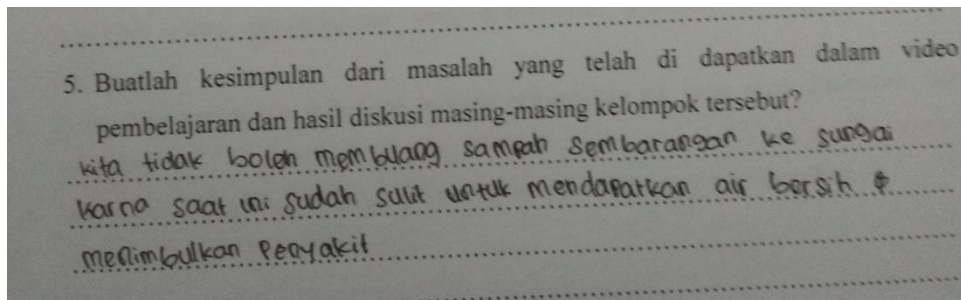 5. Buatlah kesimpulan dari masalah yang telah di dapatkan dalam video
pembelajaran dan hasil diskusi masing-masing kelompok tersebut?
kita tidak boleh membuang sampah sembarangan ke sungai
karna saat ini sudah sulit untuk mendapatkan air bersih &
menimbulkan penyakit